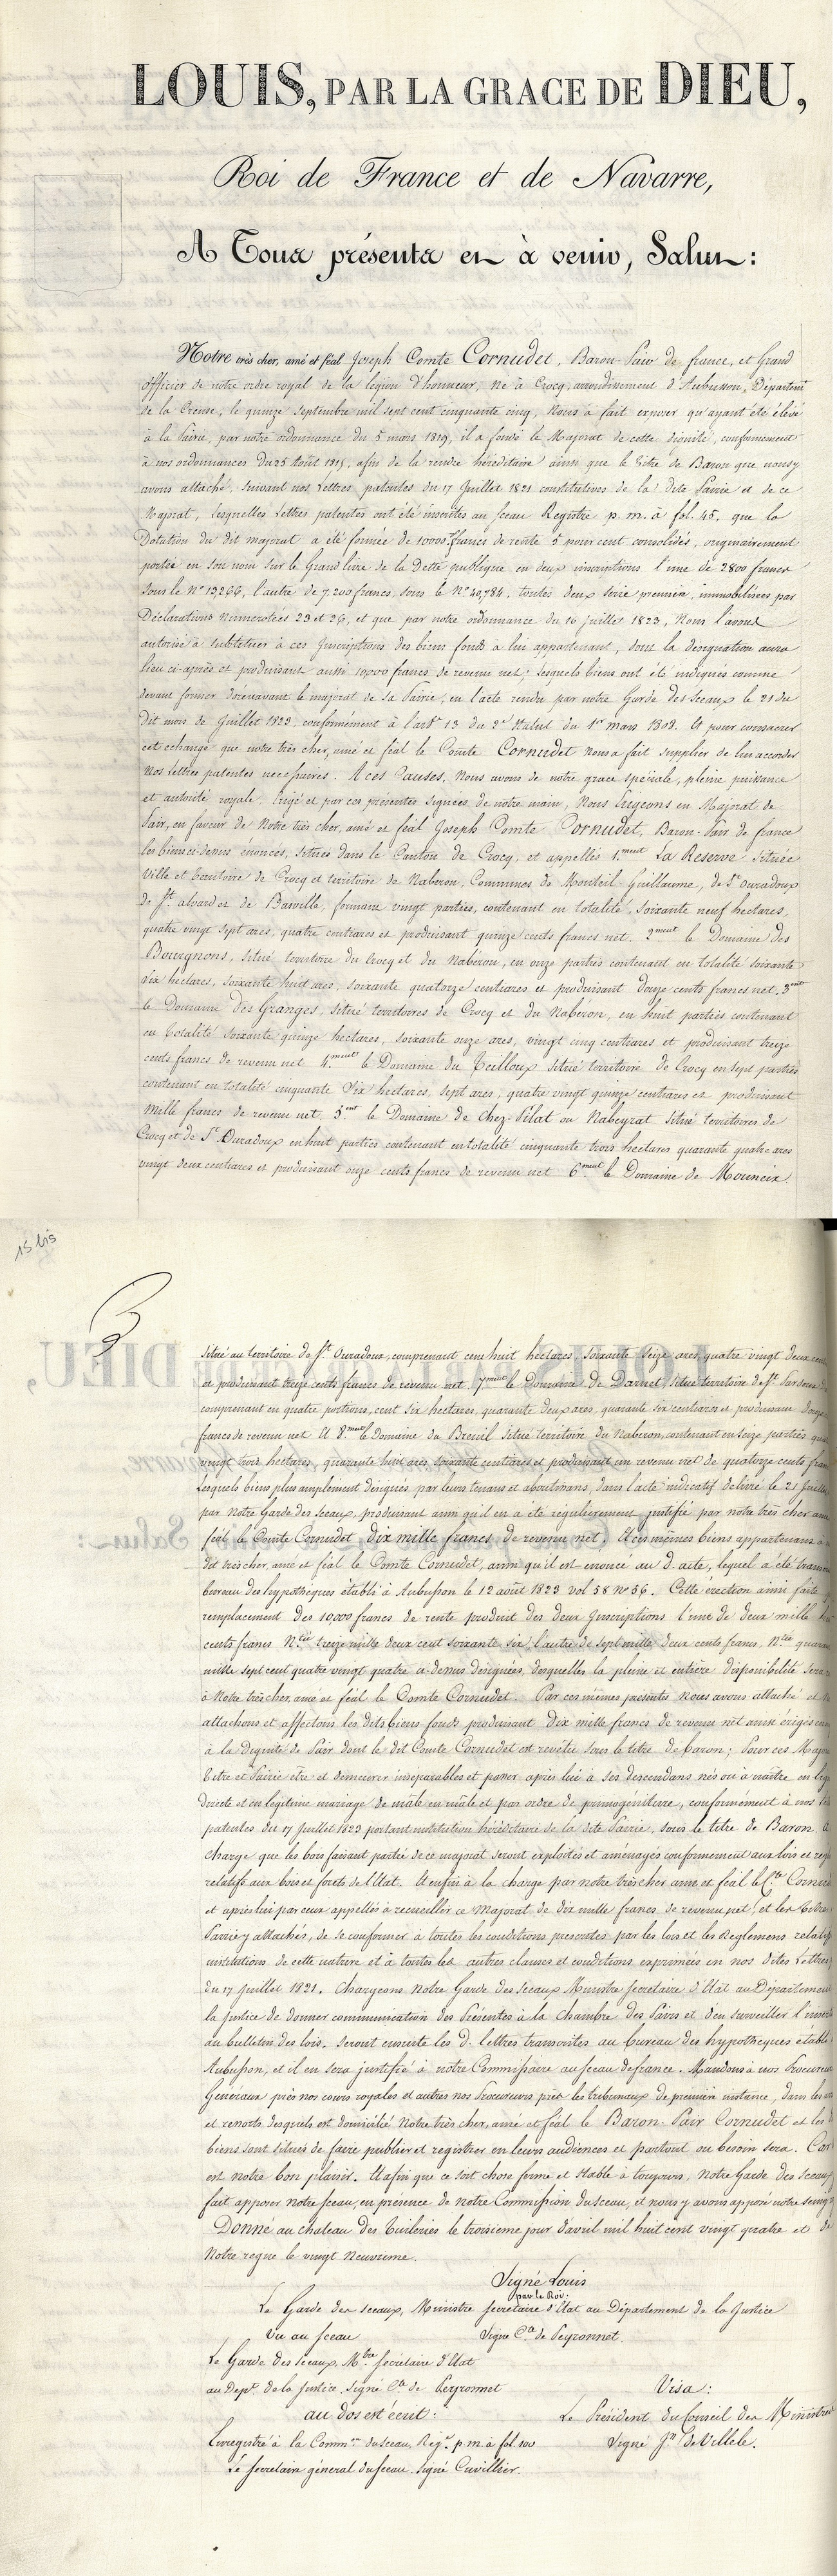 LOUIS, PAR LA GRACE DE DIEU,
Roi de France et de Navarre,
A Tous présents et à venir, Salut:
Notre très cher, amé et féal Joseph Comte Cornudet, Baron-Pair de france, et Grand
officier de notre ordre royal de la légion d'honneur, né à Crocq, arrondissement d'Aubusson, Départemt
de la Creuse, le quinze septembre mil sept cent cinquante cinq, Nous a fait exposer qu'ayant été élevé
à la Pairie, par notre ordonnance du 5 mars 1819, il a fondé le Majorat de cette dignité, conformément
à nos ordonnances du 25 Août 1815, afin de la rendre héréditaire ainsi que le titre de Baron que nous y
avons attaché, suivant nos Lettres patentes du 17 Juillet 1821 constitutives de la dite Pairie et de ce
Majorat, lesquelles Lettres patentes ont été inscrites au sceau Registre p. m. 2 fol. 45. que la
Dotation du dit majorat a été formée de 10000 francs de rente 5 pour cent consolidés, originairement
portée en son nom sur le Grand livre de la Dette publique en deux inscriptions l'une de 2800 francs
sous le No 13266, l'autre de 7,200 francs, sous le No 40,784, toutes deux série première, immobilisées par
Déclarations numerotées 23 et 26, et que par notre ordonnance du 16 juillet 1823, Nous l'avons
autorisé à substituer à ces Inscriptions des biens fonds à lui appartenant, dont la désignation aura
lieu ci-après et produisant aussi 10,000 francs de revenu net; lesquels biens ont été indiqués comme
devant former dorenavant le majorat de sa Pairie, en l'acte rendu par notre Garde des Sceaux le 21 du
dit mois de Juillet 1823, conformément à l'artle 13 du 2e Statut du 1er mars 1808. Et pour consacrer
cet echange que notre très cher, amé et féal le Comte Cornudet nous a fait supplier de lui accorder
Nos lettres patentes necessaires. A ces Causes, Nous avons de notre grace spéciale, pleine puissance
et autorité royale, Erigé et par ces présentes signées de notre main, Nous Erigeons en Majorat de
Pair, en faveur de Notre très cher, amé et féal Joseph Comte Cornudet, Baron-Pair de france
les biens ci-dessus énoncés, situés dans le Canton de Crocq, et appellés 1.ment La Reserve située
Ville et territoire de Crocq et territoire de Naberon, Communes de Monteil-Guillaume, de St Ouradoux
de St. alvard et de Basville, formant vingt parties, contenant en totalité, soixante neuf hectares,
quatre vingt sept ares, quatre centiares et produisant quinze cents francs net. 2ment le Domaine des
Bourgnons, situé territoire du Crocq et du Naberon, en onze parties contenant en totalité soixante
six hectares, soixante huit ares, soixante quatorze centiares et produisant Douze cents francs net. 3ment
le Domaine des Granges, situé territoires de Crocq et du Naberon, en huit parties contenant
en totalité soixante quinze hectares, soixante onze ares, vingt cinq centiares et produisant treize
cents francs de revenu net 4.ment le Domaine du Teilloux situé territoire de Crocq en sept parties
contenant en totalité cinquante Six hectares, sept ares, quatre vingt quinze centiares et produisant
Mille francs de revenu net. 5ent le Domaine de chez-Pilat ou Nabeyrat situé territoires de
Crocq et de St Ouradoux en huit parties contenant en totalité cinquante trois hectares quarante quatre ares
vingt deux centiares et produisant onze cents francs de revenu net 6ment le Domaine de Mouneix.
15 bis
situé au territoire de St. Ouradoux, comprenant cent huit hectares, soixante Seize ares, quatre vingt deux cent
et produisant treize cents francs de revenu net 7ment le Domaine de Darnet, situé territoire de St
comprenant en quatre portions, cent six hectares, quarante deux ares, quarante six centiares et produisant douze
francs de revenu net Et 8.ment le Domaine du Breuil situé territoire du Naberon, contenant en seize parties
vingt trois hectares quarante huit ares soixante centiares et produisant un revenu net de quatorze cents
lesquels biens plus amplement désignés par leurs tenans et aboutissans, dans l'acte indicatif délivré le 21 Juillet
par Notre Garde des Sceaux, produisant ainsi qu'il en a été régulierement justifié par notre très cher
féal le Comte Cornudet dix mille francs de revenu net. Et ces mêmes biens appartenans à
dit très cher, amé et féal le Comte Cornudet, ainsi qu'il est enoncé au d. acte, lequel a été
bureau des hypothèques établi à Aubusson le 12 août 1823 vol 58 no 56. Cette érection ainsi faite
remplacement des 10,000 francs de rente produit des deux Inscriptions l'une de deux mille
cents francs Ntée treize mille deux cent soixante six, l'autre de sept mille deux cents francs, Ntée
mille sept cent quatre vingt quatre ci-dessus désignées, desquelles la pleine et entière disponibilité sera
à Notre très cher, amé et féal le Comte Cornudet. Par ces mêmes présentes Nous avons attaché et
attachons et affectons les dits biens-fonds produisant Dix mille francs de revenu net ainsi érigés en
à la Dignité de Pair dont le dit Comte Cornudet est revêtu sous le titre de baron; Pour ces
titre et Pairie être et demeurer inséparables et passer après lui à ses descendans nés ou à naître en
directe et en légitime mariage de mâle en mâle et par ordre de primogéniture, conformément à nos
patentes du 17 Juillet 1823 portant institution héréditaire de la dite Pairie, sous le titre de Baron, à
charge que les bois faisant partie de ce majorat seront exploités et aménagés conformément aux lois et
relatifs aux bois et forêts de l'Etat. Et enfin à la charge par notre très cher amé et féal le Cte
et après lui par ceux appellés à recueillir ce Majorat de dix mille francs de revenu net, et les titre
Pairie y attachés, de se conformer à toutes les conditions prescrites par les lois et les Réglemens
institutions de cette nature et à toutes les autres clauses et conditions exprimées en nos dites Lettres
du 17 Juillet 1821. Chargeons Notre Garde des Sceaux Ministre Secrétaire d'Etat au Département
la justice de donner communication des Présentes à la Chambre des Pairs et d'en surveiller
au bulletin des lois. seront ensuite les d. lettres transcrites au bureau des hypothèques établi
Aubusson, et il en sera justifié à notre Commissaire au sceau de france. Mandons à nos
Généraux près nos cours royales et autres nos Procureurs près les tribunaux de première instance, dans les
et ressorts desquels est domicilié Notre très cher, amé et féal le Baron-Pair Cornudet et les
biens sont situés de faire publier et registrer en leurs audiences et partout ou besoin sera. Car
est notre bon plaisir. Et afin que ce soit chose ferme et stable à toujours, notre Garde des sceaux
fait apposer notre sceau, en présence de notre Commission du sceau, et nous y avons apposé notre seing
Donné au chateau des Tuileries le troisieme jour d'avril mil huit cent vingt quatre et de
Notre regne le vingt Neuvieme.
Signé Louis
par le Roi:
Le Garde des Sceaux, Ministre secretaire d'Etat au Département de la Justice
Vu au sceau
Signé Cte de Peyronnet.
Le Garde des Sceaux, Mtre secretaire d'Etat
au Dept de la Justice. Signé Cte de Peyronnet
Visa:
au dos est écrit:
Le Président du Conseil des Ministres
Enregistré à la Common du sceau, Regre p. m. 2 fol. 100
Signé Jh de Villele.
Le secretaire général du sceau. Signé Cuvillier.